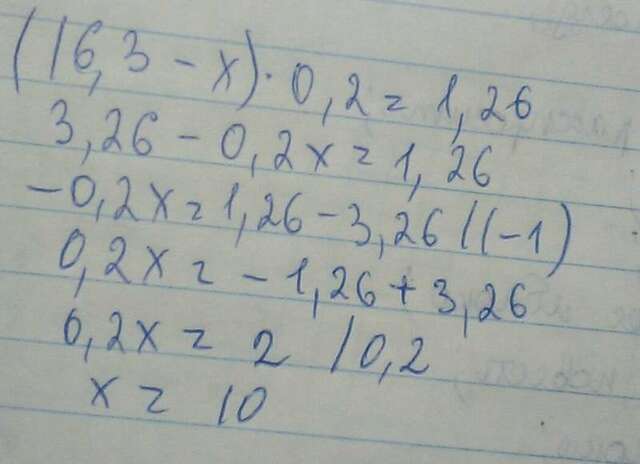 (16,3 - x) · 0,2 = 1,26
3,26 - 0,2x = 1,26
-0,2x = 1,26 - 3,26 /(-1)
0,2x = -1,26 + 3,26
0,2x = 2 /0,2
x = 10